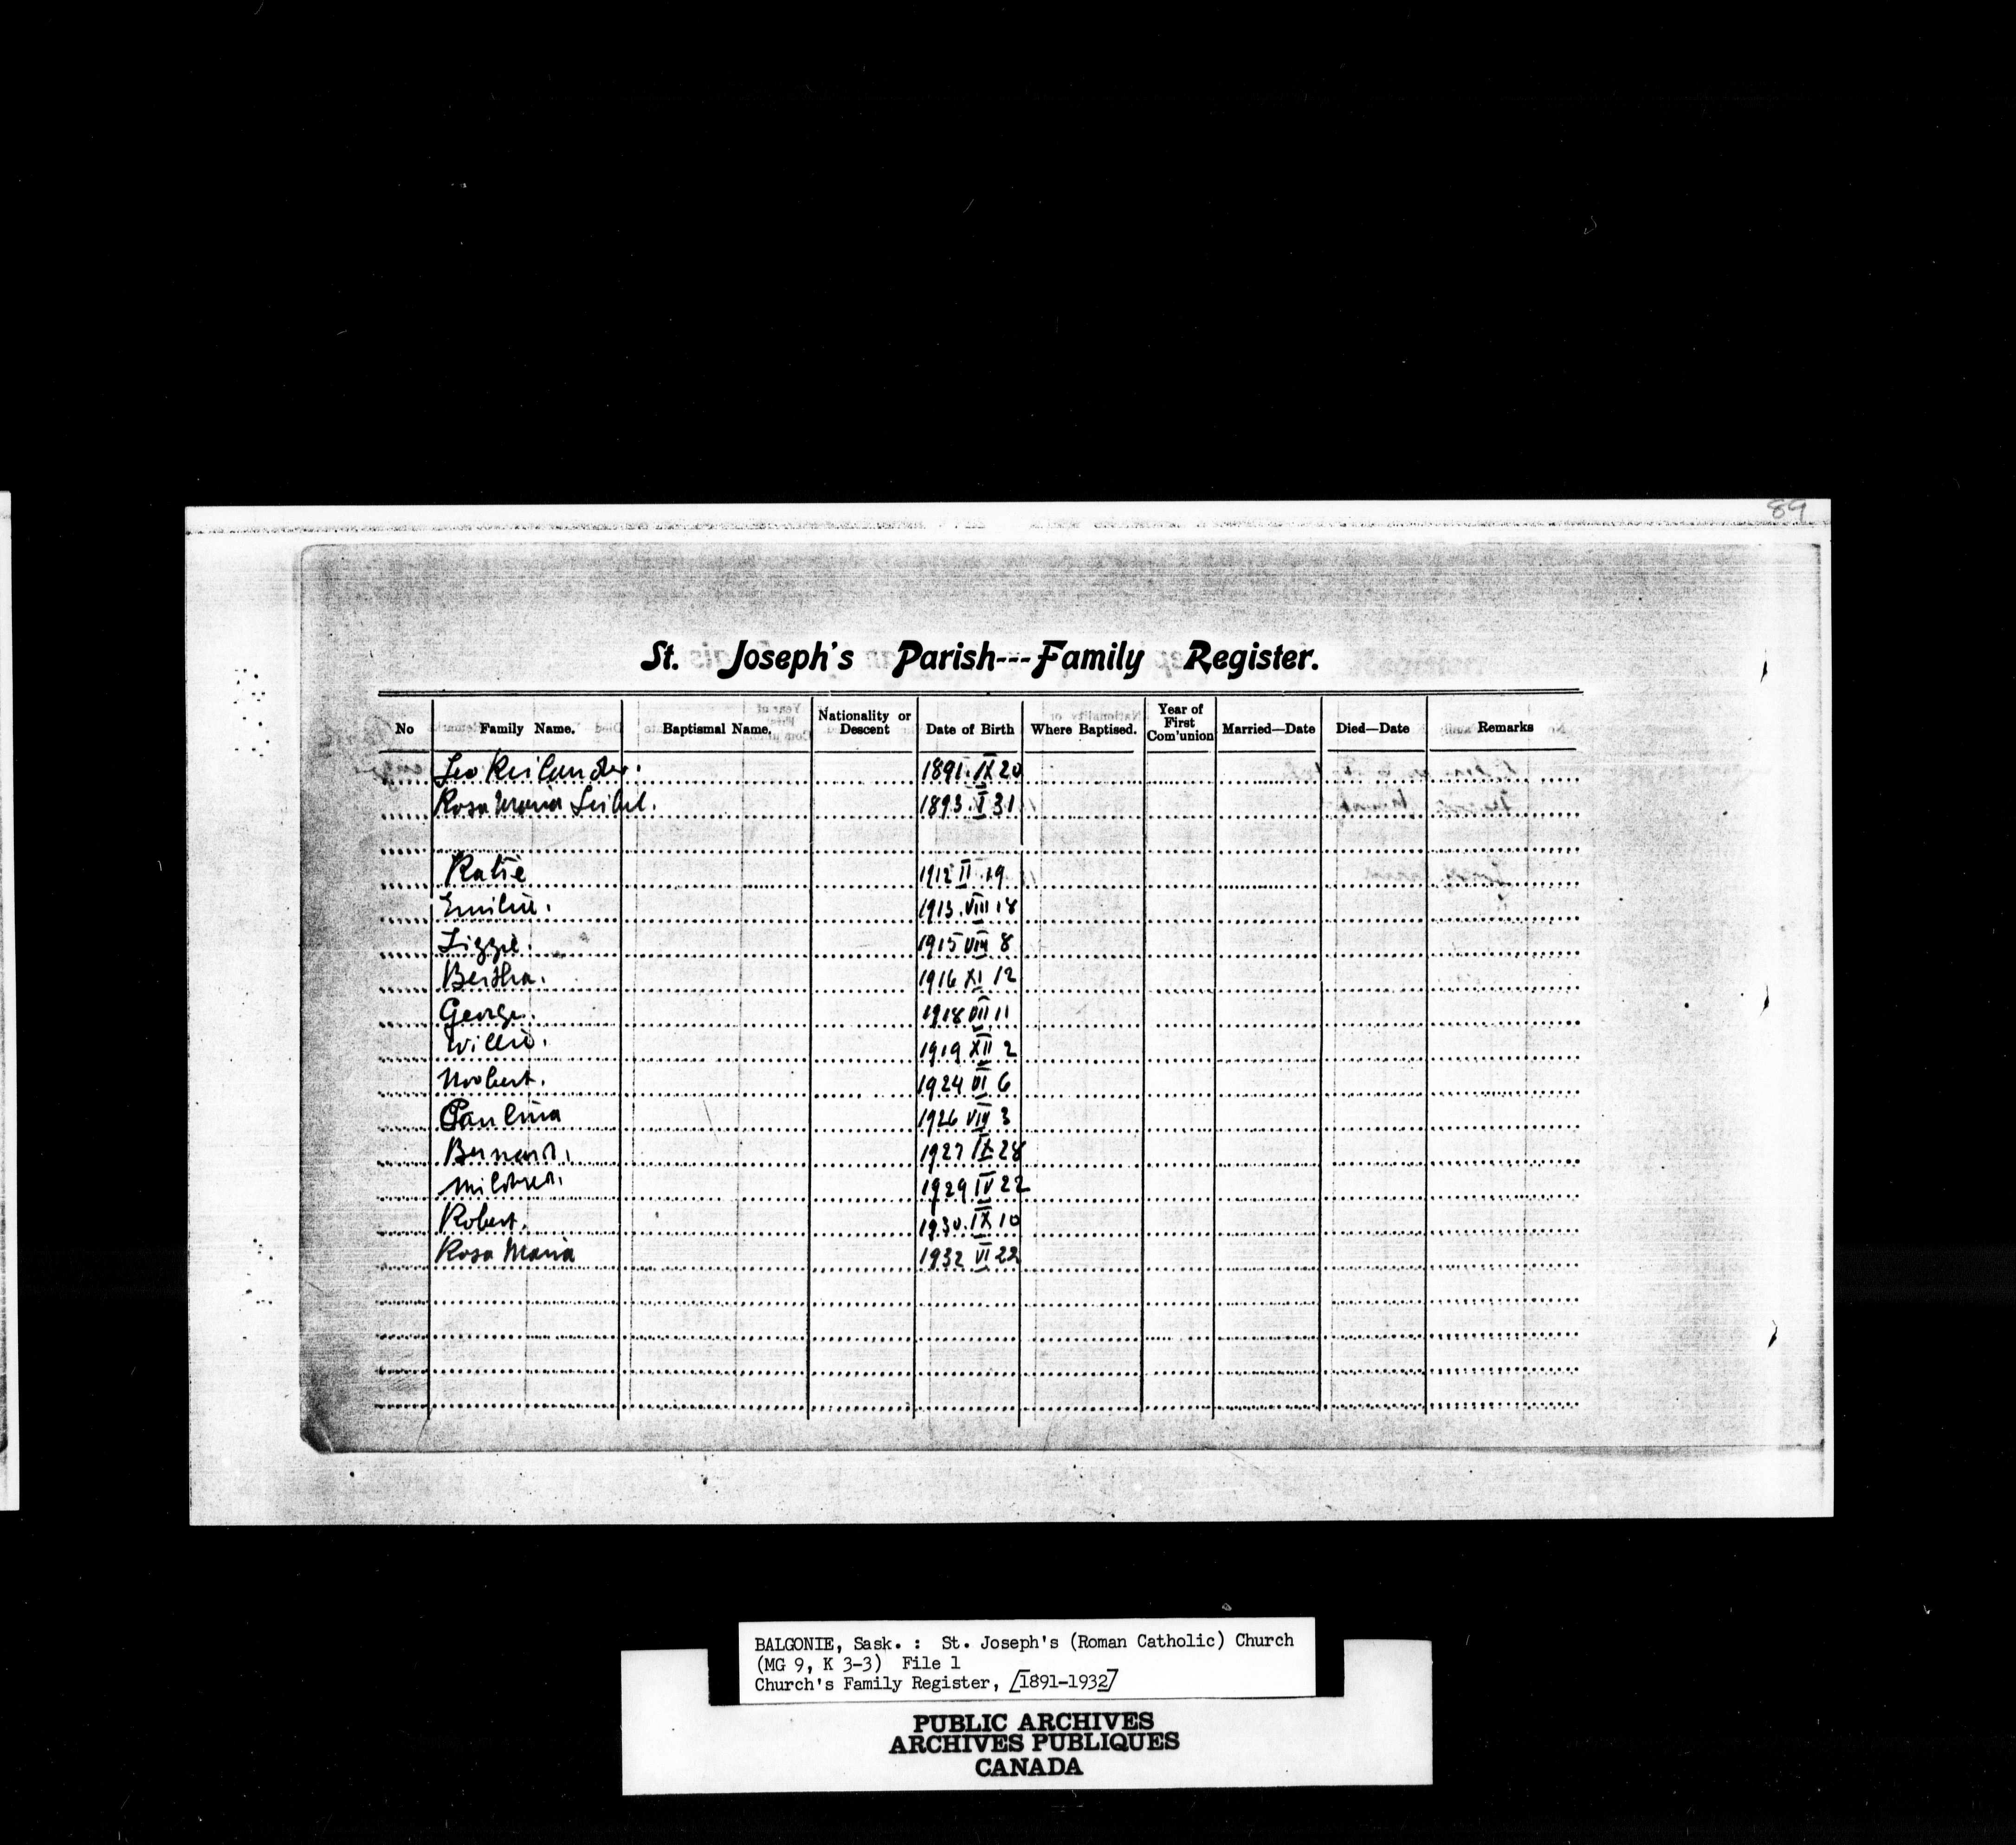 89
St. Joseph's Parish---Family Register.
No Family Name. Baptismal Name. Nationality or Descent Date of Birth Where Baptised. Year of First Com'union Married—Date Died—Date Remarks
Leo Reilander. 1891. IX 20
Rosa Maria Seibel. 1893. I 31
Katie 1912 II 19
Emilie. 1913. VIII 18
Lizzie. 1915 VIII 8
Bertha. 1916 XI 12
George. 1918 VII 11
Willie. 1919 XII 2
Norbert. 1924 VI 6
Paulina 1926 VIII 3
Bernard. 1927 IX 28
Mildred. 1929 IV 22
Robert. 1930. IX 10
Rosa Maria 1932 VI 22
BALGONIE, Sask. : St. Joseph's (Roman Catholic) Church
(MG 9, K 3-3) File 1
Church's Family Register, [1891-1932]
PUBLIC ARCHIVES
ARCHIVES PUBLIQUES
CANADA